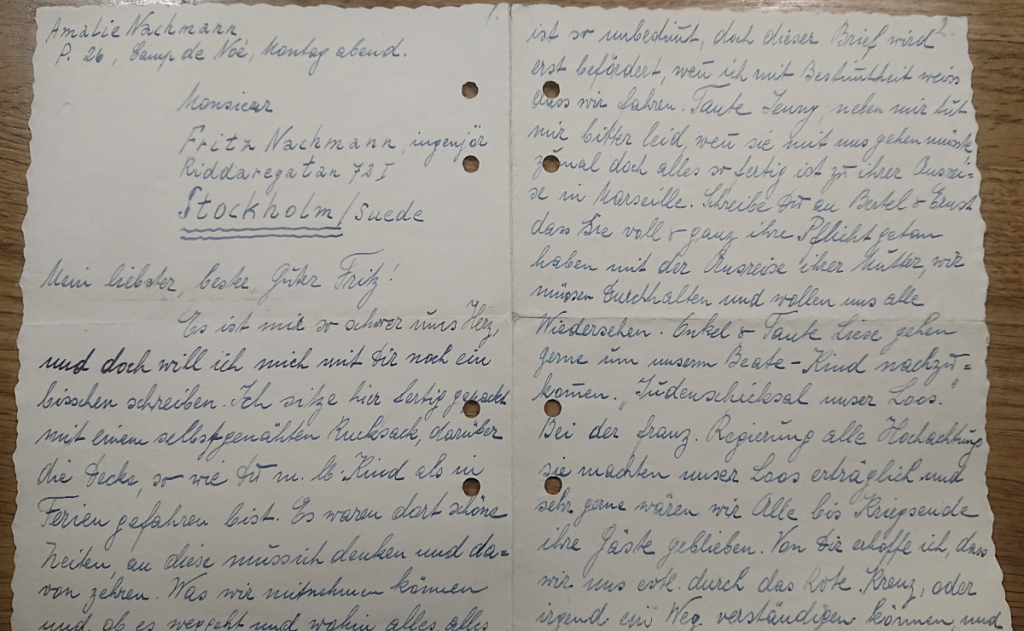 1.
Amalie Nachmann
P. 26, Camp de Noé, Montag abend.
Monsieur
Fritz Nachmann, ingenjör
Riddaregatan 72 I
Stockholm/Suede
Mein liebster, bester, guter Fritz!
Es ist mir so schwer ums Herz,
und doch will ich mich mit Dir noch ein
bisschen schreiben. Ich sitze hier fertig gepackt
mit einem selbstgenähten Rucksack, darüber
die Decke, so wie Du m. lb. Kind als in
Ferien gefahren bist. Es waren dort schöne
Zeiten, an diese muss ich denken und da=
von zehren. Was wir mitnehmen können
und ob es weggeht und wohin alles, alles
2.
ist so unbestimt, doch dieser Brief wird
erst befördert, wen ich mit Bestimtheit weiss
dass wir fahren. Tante Jenny, neben mir tut
mir bitter leid, wen sie mit uns gehen müsste
zumal doch alles so fertig ist zu ihrer Ausrei=
se in Marseille. Schreibe Du an Bertel & Ernst
dass Sie voll & ganz ihre Pflicht getan
haben mit der Ausreise ihrer Mutter, wir
müssen durchhalten und wollen uns alle
Wiedersehen. Onkel & Tante Liese gehen
gerne um unserm Beate-Kind nachzu=
komen. "Judenschicksal unser Loos."
Bei der franz. Regierung alle Hochachtung
sie machten unser Loos erträglich und
sehr gerne wären wir Alle bis Kriegsende
ihre Gäste geblieben. Von Dir erhoffe ich, dass
wir uns evtl. durch das Rote Kreuz, oder
irgend ein Weg verständigen können, und